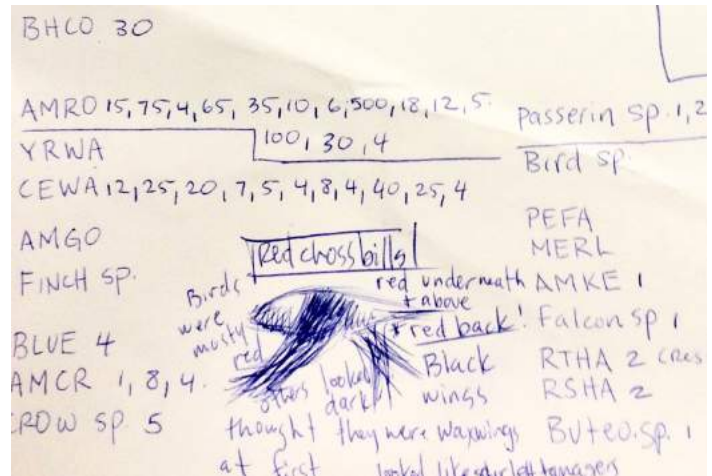 BHCO 30
AMRO 15, 75, 4, 65, 35, 10, 6, 500, 18, 12, 5
100, 30, 4
YRWA
CEWA 12, 25, 20, 7, 5, 4, 8, 4, 40, 25, 4
AMGO
FINCH SP.
BLUE 4
AMCR 1, 8, 4
CROW SP 5
Red chossbills
Birds were mostly red
red underneath + above
+ red back!
Black wings
others looked dark
thought they were waxwings
at first
looked like
tanagers
Passerin sp. 1, 2
Bird sp.
PEFA
MERL
AMKE 1
Falcon sp 1
RTHA 2
RSHA 2
Buteo. sp. 1